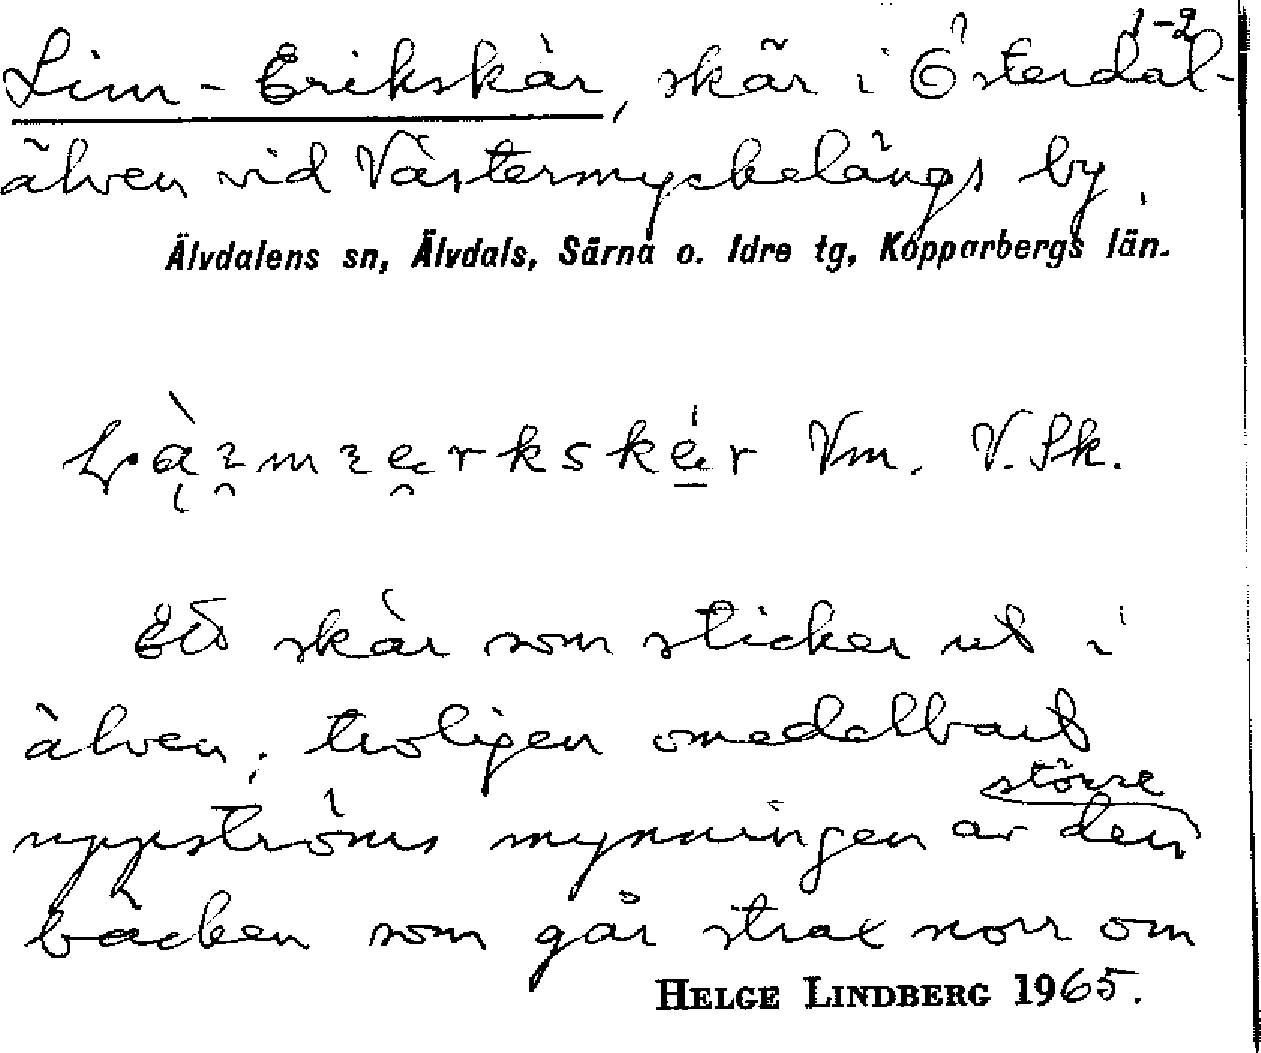 1-2
Lim-Erikskär, skär i Österdal-
älven vid Västermyckelängs by,
Älvdalens sn, Älvdals, Särna o. Idre tg, Kopparbergs län.
Vm. V.Sk.
Ett skär som sticker ut i
älven, troligen omedelbart
större
uppströms mynningen av den
bäcken som går strax norr om
HELGE LINDBERG 1965.